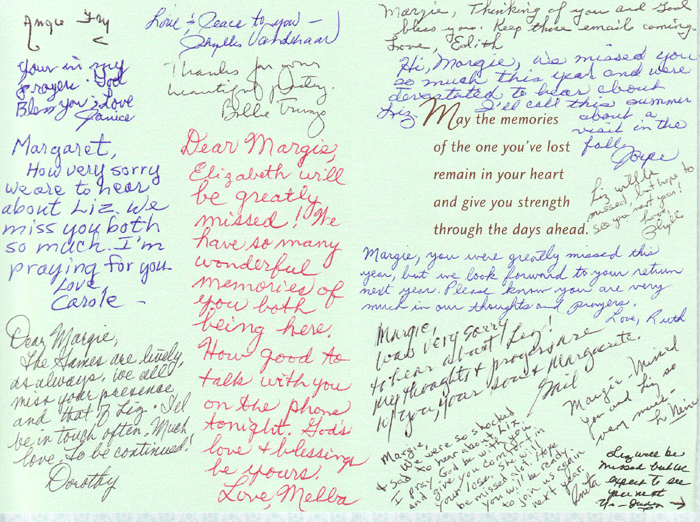 Angie Fry
Love & Peace to you –
Phyllis
your in my
prayer. God
Bless you; Love
Janice
Thanks for your
beautiful poetry.
Billie
Margaret,
How very sorry
we are to hear
about Liz. We
miss you both
so much. I'm
praying for you
Love,
Carole –
Dear Margie,
The Games are lively,
as always, we all
miss your presence
and that of Liz. I'll
be in touch often. Much
love. To be continued!
Dorothy
Dear Margie,
Elizabeth will
be greatly
missed! We
have so many
wonderful
memories of
you both
being here.
How good to
talk with you
on the phone
tonight. God's
love & blessings
be yours.
Love, Melba
Margie, Thinking of you and God
bless you. Keep those email coming.
Love, Edith
Hi, Margie, we missed you
so much this year and were
devastated to hear about
Liz. I'll call this summer
about a
visit in the
fall.
Joyce
May the memories
of the one you've lost
remain in your heart
and give you strength
through the days ahead.
Liz will be
missed, but hope to
see you next year!
Love,
Margie, you were greatly missed this
year, but we look forward to your return
next year. Please know you are very
much in our thoughts and prayers.
Love, Ruth
Margie,
I was very sorry
to hear about Liz!
My thoughts & prayers are
w/ you, your son & Marguerite.
Gail
Margie. Missed
you and Liz so
very much.
Margie,
We were so shocked
& sad to hear about Liz.
I pray God be with you
and give you comfort in
your loss. she will
be missed a lot. Hope
you will be ready
to join us again
next year.
Anita
Liz will be
missed but we
expect to see
you next